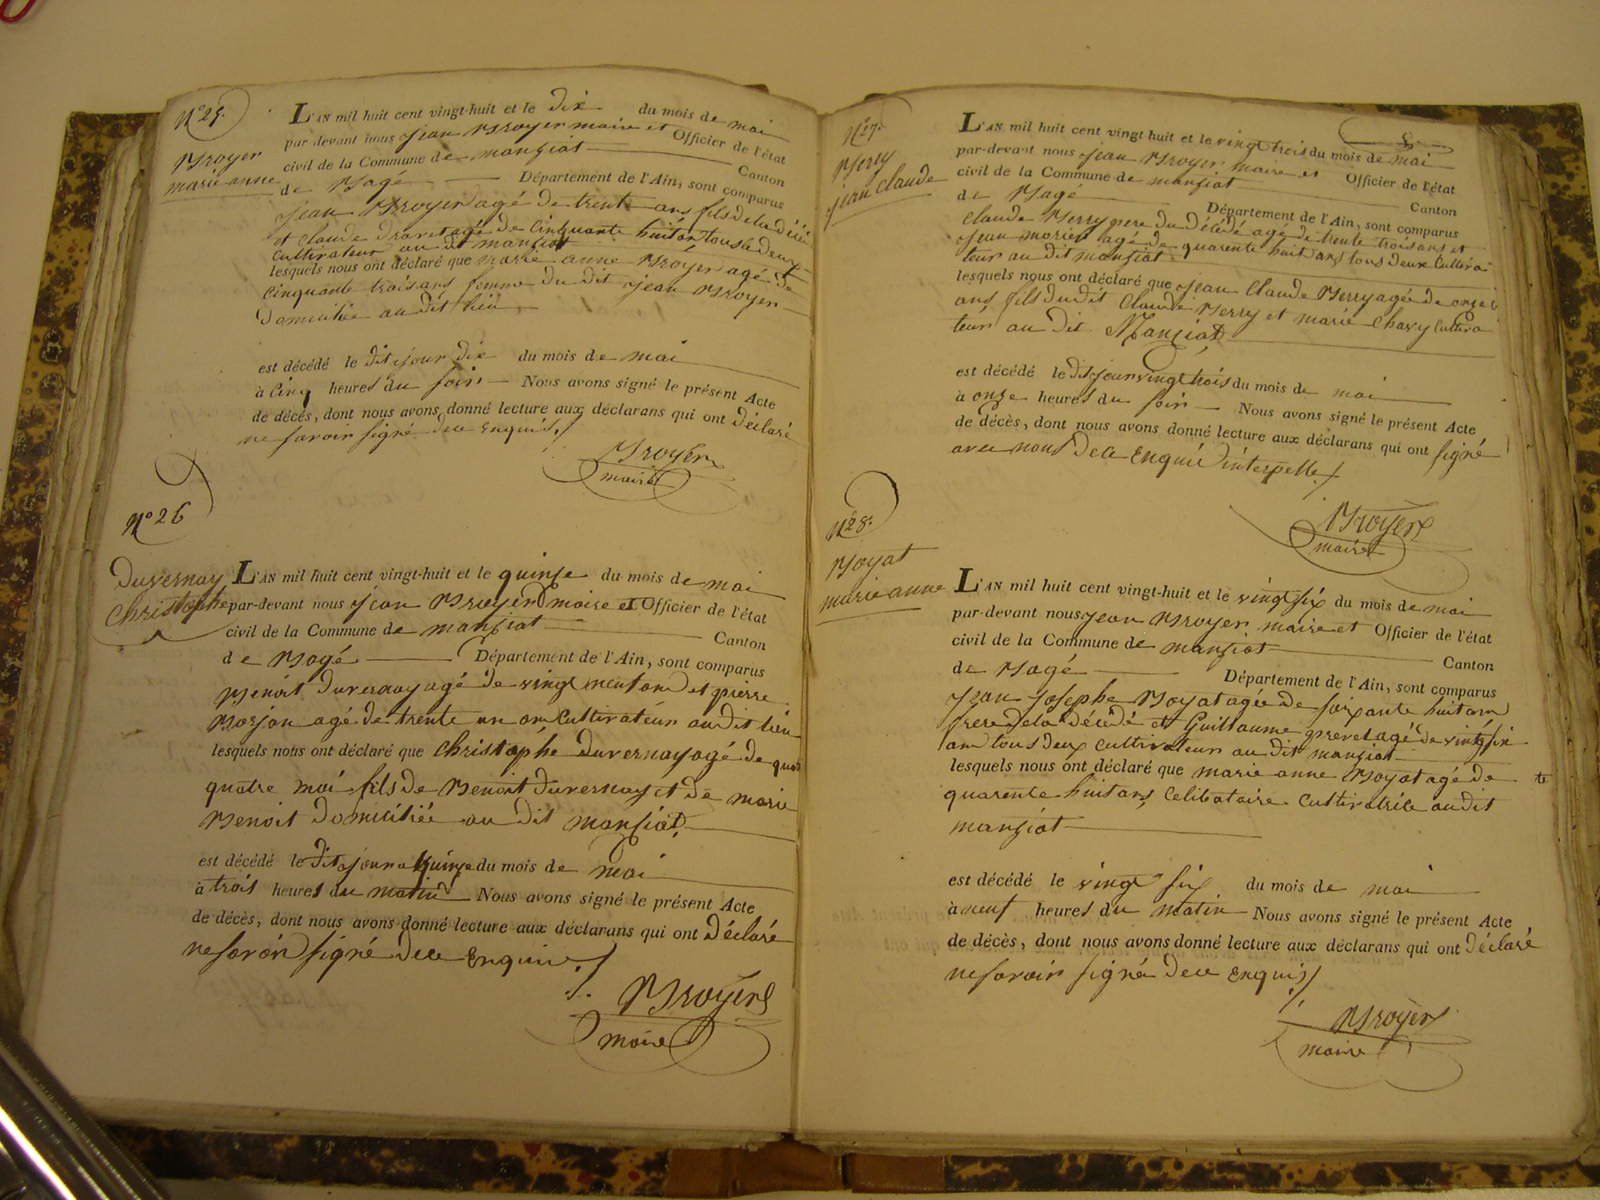 N° 25.
Broyer
marie anne
L'AN mil huit cent vingt-huit et le dix du mois de mai
par-devant nous Jean Broyer maire et Officier de l'état
civil de la Commune de manziat Canton
de Bagé Département de l'Ain, sont comparus
Jean Broyer agé de trente ans fils de la
et Claude agé de Cinquante huit ans tous deux
Cultivateur au dit manziat
lesquels nous ont déclaré que marie anne Broyer agé de
Cinquante trois ans femme du dit Jean Broyer
Domiciliée au dit lieu
est décédé le dit jour dix du mois de mai
à Cinq heures du soir Nous avons signé le présent Acte
de décès, dont nous avons donné lecture aux déclarans qui ont Déclaré
ne savoir signé de ce Enquis
Broyer
maire
N° 26
Duvernay
Christophe
L'AN mil huit cent vingt-huit et le quinze du mois de mai
par-devant nous Jean Broyer maire et Officier de l'état
civil de la Commune de manziat Canton
de Bagé Département de l'Ain, sont comparus
Benoit Duvernay agé de vingt neuf ans et pierre
agé de trente un an Cultivateur au dit lieu
lesquels nous ont déclaré que Christophe Duvernay agé de
quatre moi fils de Benoit Duvernay et de marie
Benoit Domiciliée au dit manziat
est décédé le Dit jour quinze du mois de mai
à trois heures du matin Nous avons signé le présent Acte
de décès, dont nous avons donné lecture aux déclarans qui ont Déclaré
ne savoir signé de ce Enquis
Broyer
maire
N° 27.
Berry
jean Claude
L'AN mil huit cent vingt-huit et le vingt trois du mois de mai
par-devant nous Jean Broyer maire et Officier de l'état
civil de la Commune de manziat Canton
de Bagé Département de l'Ain, sont comparus
Claude Berry pere du Décédé agé de trente trois ans et
Jean agé de quarente huit ans tous deux Cultiva
teur au dit manziat
lesquels nous ont déclaré que Jean Claude Berry agée de onze
ans fils du dit Claude Berry et marie Chavy Cultiva
teur au dit Manziat
est décédé le dit jour vingt trois du mois de mai
à onze heures du soir Nous avons signé le présent Acte
de décès, dont nous avons donné lecture aux déclarans qui ont signé
avec nous de ce Enquis interpelle
Broyer
maire
N° 28.
Boyat
marie anne
L'AN mil huit cent vingt-huit et le vingt six du mois de mai
par-devant nous Jean Broyer maire et Officier de l'état
civil de la Commune de manziat Canton
de Bagé Département de l'Ain, sont comparus
Jean Josephe Boyat agée de soixante huit ans
frere de la Décédé et Guillaume prevet agé de vingt six
ans tous deux cultivateur au dit manziat
lesquels nous ont déclaré que marie anne Boyat agé de
quarente huit ans Celibataire Cultivatrice au dit
manziat
est décédé le vingt six du mois de mai
à neuf heures du matin Nous avons signé le présent Acte
de décès, dont nous avons donné lecture aux déclarans qui ont Déclaré
ne savoir signé de ce Enquis
Broyer
maire